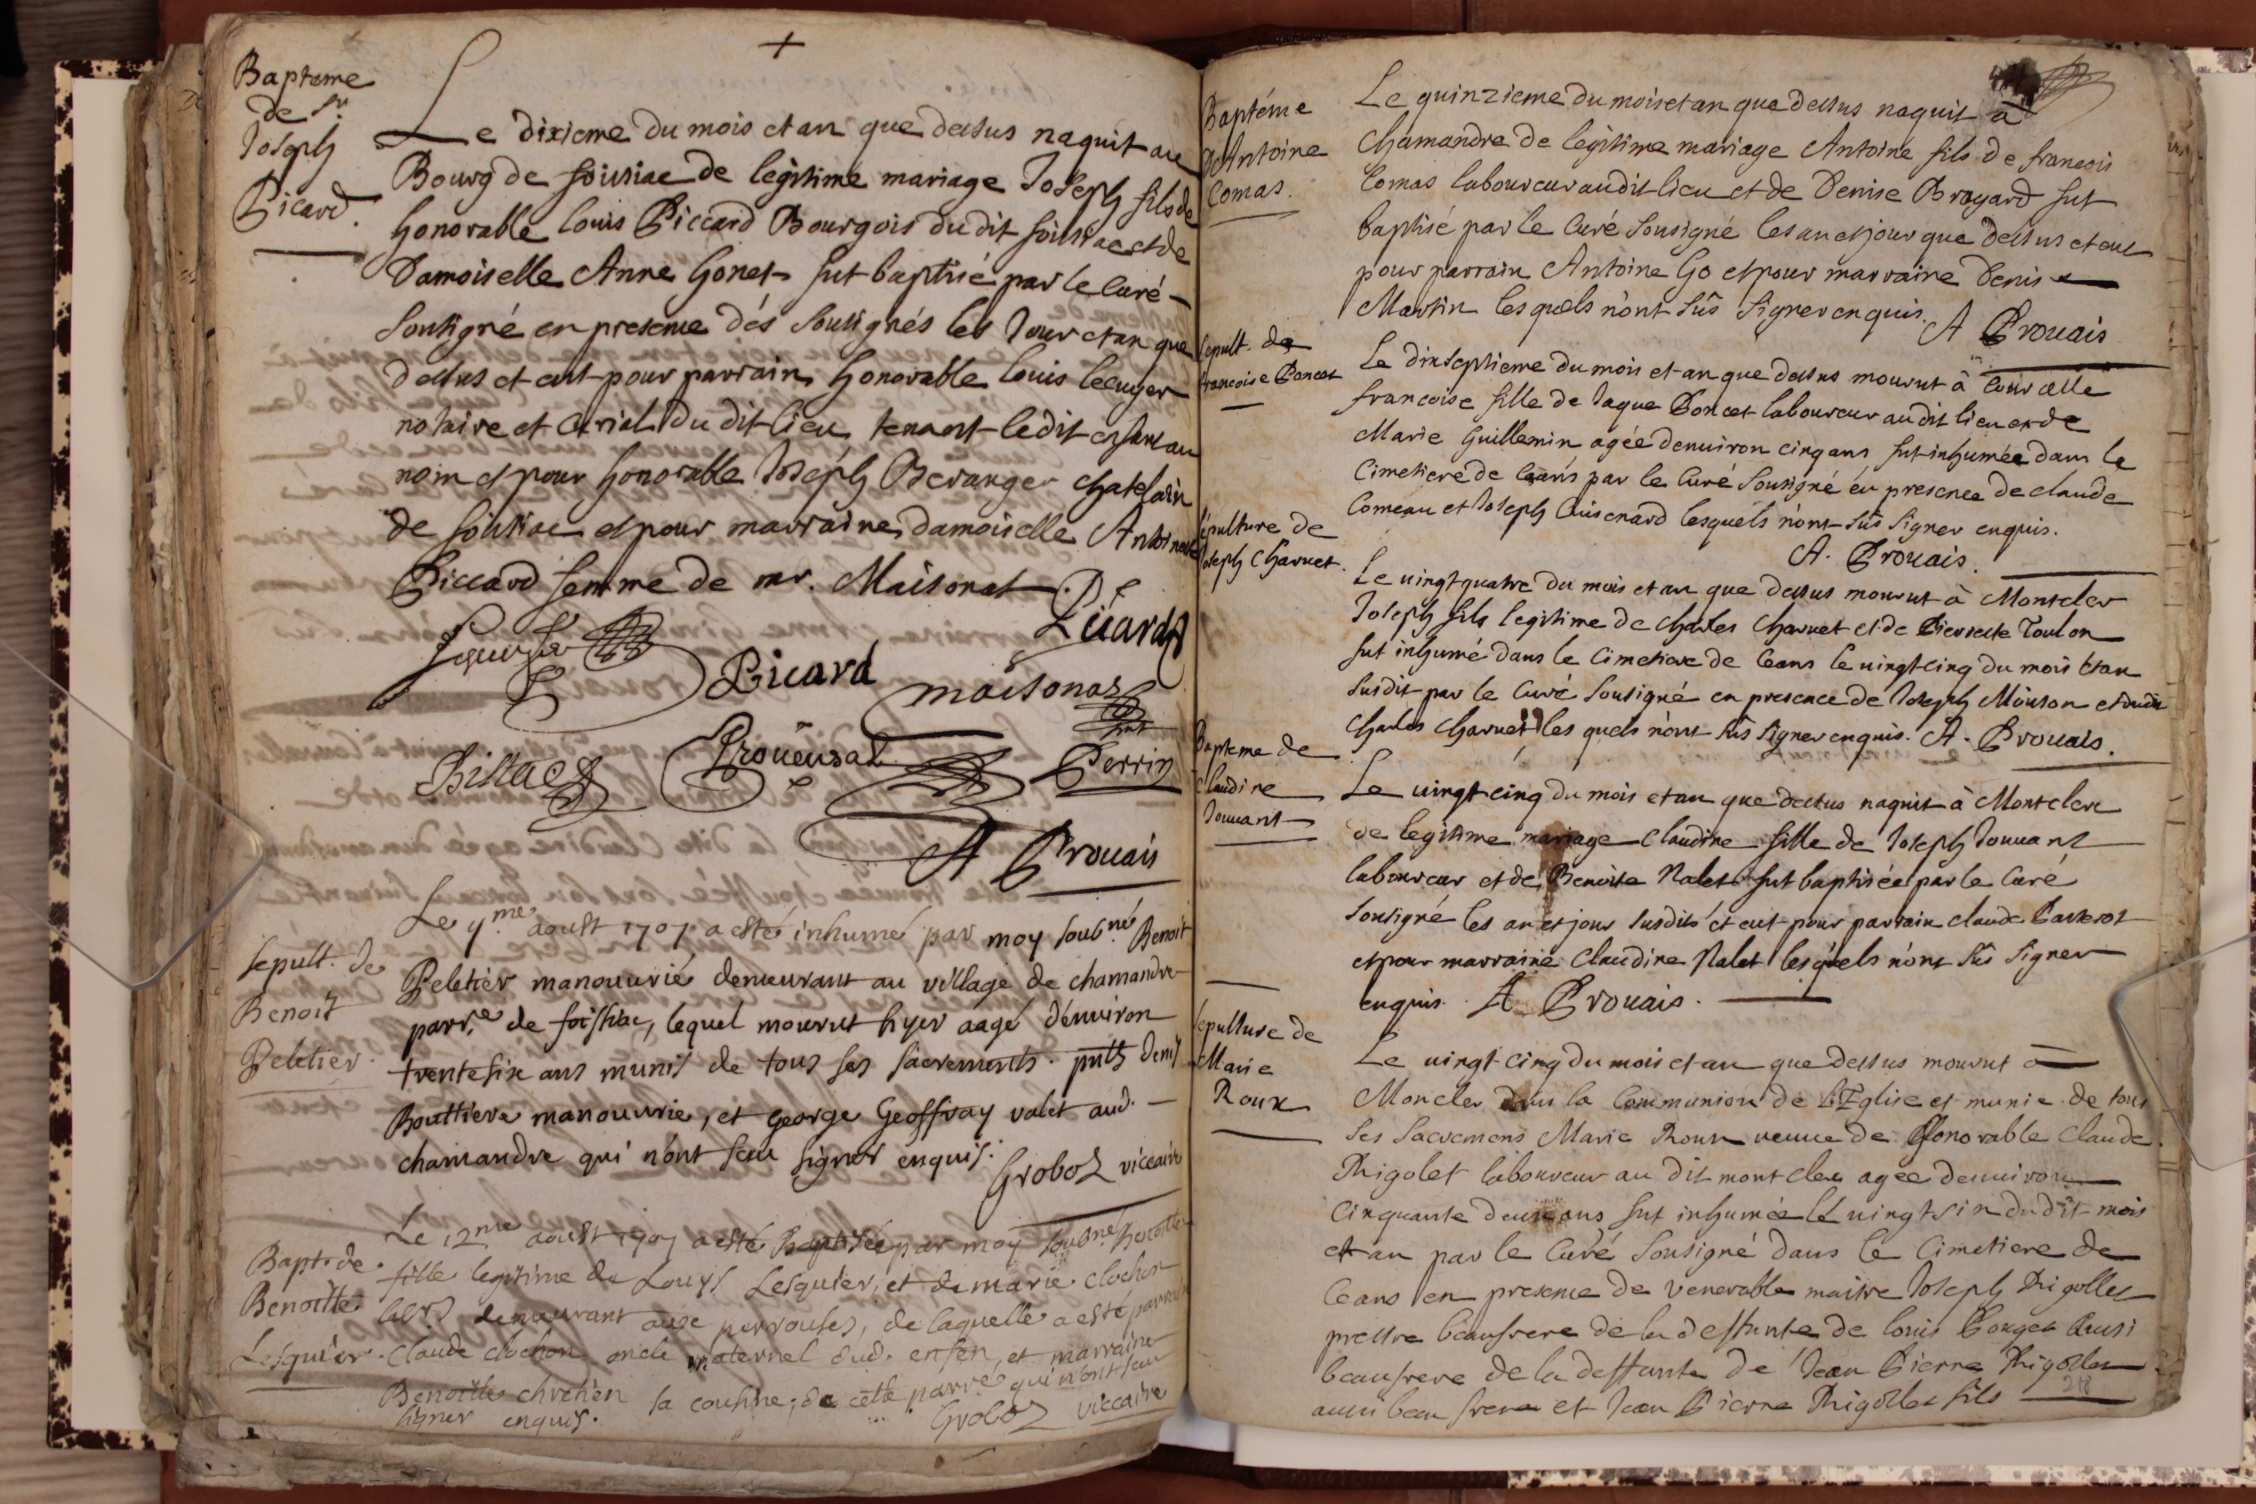 +
Bapteme
de sr
Joseph
Picard.
Le dixieme du mois et an que dessus naquit au
Bourg de foissiac de legitime mariage Joseph fils de
honorable louis Piccard Bourgois du dit foissiac et de
Damoiselle Anne Gonet fut baptisé par le curé
sousigné en presence dés sousignés les jour et an que
dessus et eut pour parrain honorable louis lecuyer
notaire et curial du dit lieu tenant ledit enfant au
nom et pour honorable Joseph Beranger chatelain
de foissiac et pour marraine damoiselle Antoinette
Piccard femme de mr. Maisonat.
Picard
Picard
maisonat
Billac
Proüensal
Perrin
A Prouais
sepult. de
Benoit
Peletier.
Le 9.me aoust 1707 a esté inhumé par moy soubné Benoit
Peletier manouurié demeurant au village de chamandre
parr.e de foissiac, lequel mourut hyer aagé d'enuiron
trentesix ans munis de tous ses sacrements. pnts Denis
Bouttiere manouurie, et george Geoffray valet aud.
chamandre qui n'ont sceu signer enquis.
Groboz viccaire
Bapt. de
Benoitte
Lesquier.
Le 12.me aoust 1707 a esté Baptisée par moy soubné Benoitte
fille legitime de Louys Lesquier, et de marie clochon
demeurant aux perrouses, de laquelle a esté parrain
claude clochon oncle maternel dud. enfen, et marraine
Benoitte chretien sa cousine, de cette parre qui n'ont sceu
signer enquis. Groboz viccaire
Baptéme
d'Antoine
Comas.
Le quinzieme du mois et an que dessus naquit à
Chamandre de legitime mariage Antoine fils de francois
Comas laboureur audit lieu et de Denise Brayard fut
baptisé par le Curé sousigné les an et jour que dessus et eut
pour parrain Antoine Go et pour marraine Denise
Martin lesquels n'ont sus signer enquis.
A Prouais
sepult. de
francoise Poncet
Le dixseptieme du mois et an que dessus mourut à Courcelle
francoise fille de Jaque Poncet laboureur au dit lieu et de
Marie Guillemin agée denuiron cinq ans fut inhumée dans le
Cimetiere de ceans par le curé sousigné en presence de claude
Comeau et Joseph Cuisenard lesquels n'ont sus signer enquis.
A. Prouais.
sepulture de
Joseph Charuet.
Le uingt quatre du mois et an que dessus mourut à Montcler
Joseph fils legitime de charles Charuet et de Pierrette Toulon
fut inhumé dans le Cimetiere de Ceans le uingt cinq du mois et an
susdit par le curé sousigné en presence de Joseph Moison et dudit
charles Charuet les quels n'ont sus signer enquis. A. Prouais.
Bapteme de
Claudine
Jouuant
Le uingt cinq du mois et an que dessus naquit à Montcler
de legitime mariage Claudine fille de Joseph Jouuant
laboureur et de Benoite Nalet fut baptisée par le Curé
sousigné les an et jour susdits et eut pour parrain claude
et pour marraine Claudine Nalet lesquels n'ont sus signer
enquis. A Prouais.
sepulture de
Marie
Roux
Le uingt cinq du mois et an que dessus mourut à
Moncler dans la Communion de l'Eglise et munie de tous
ses sacremens Marie Roux veuue de Honorable Claude
Rigolet laboureur au dit montcler agée denuiron
cinquante deux ans fut inhumée le uingt six du dit mois
et an par le Curé sousigné dans le Cimetiere de
Ceans en presence de venerable maitre Joseph Rigollet
prestre beaufrere de la deffunte de louis Aussi
beaufrere de la deffunte de Jean Pierre Rigollet
aussi beau frere et Jean Pierre Rigollet fils
218